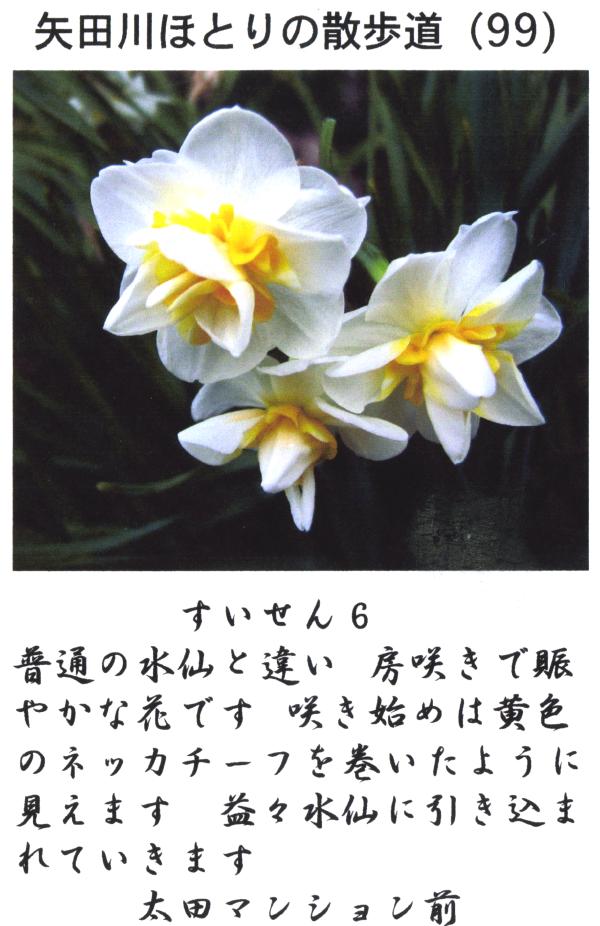 矢田川ほとりの散歩道 (99)
すいせん6
普通の水仙と違い 房咲きで賑
やかな花です 咲き始めは黄色
のネッカチーフを巻いたように
見えます 益々水仙に引き込ま
れていきます
太田マンション前